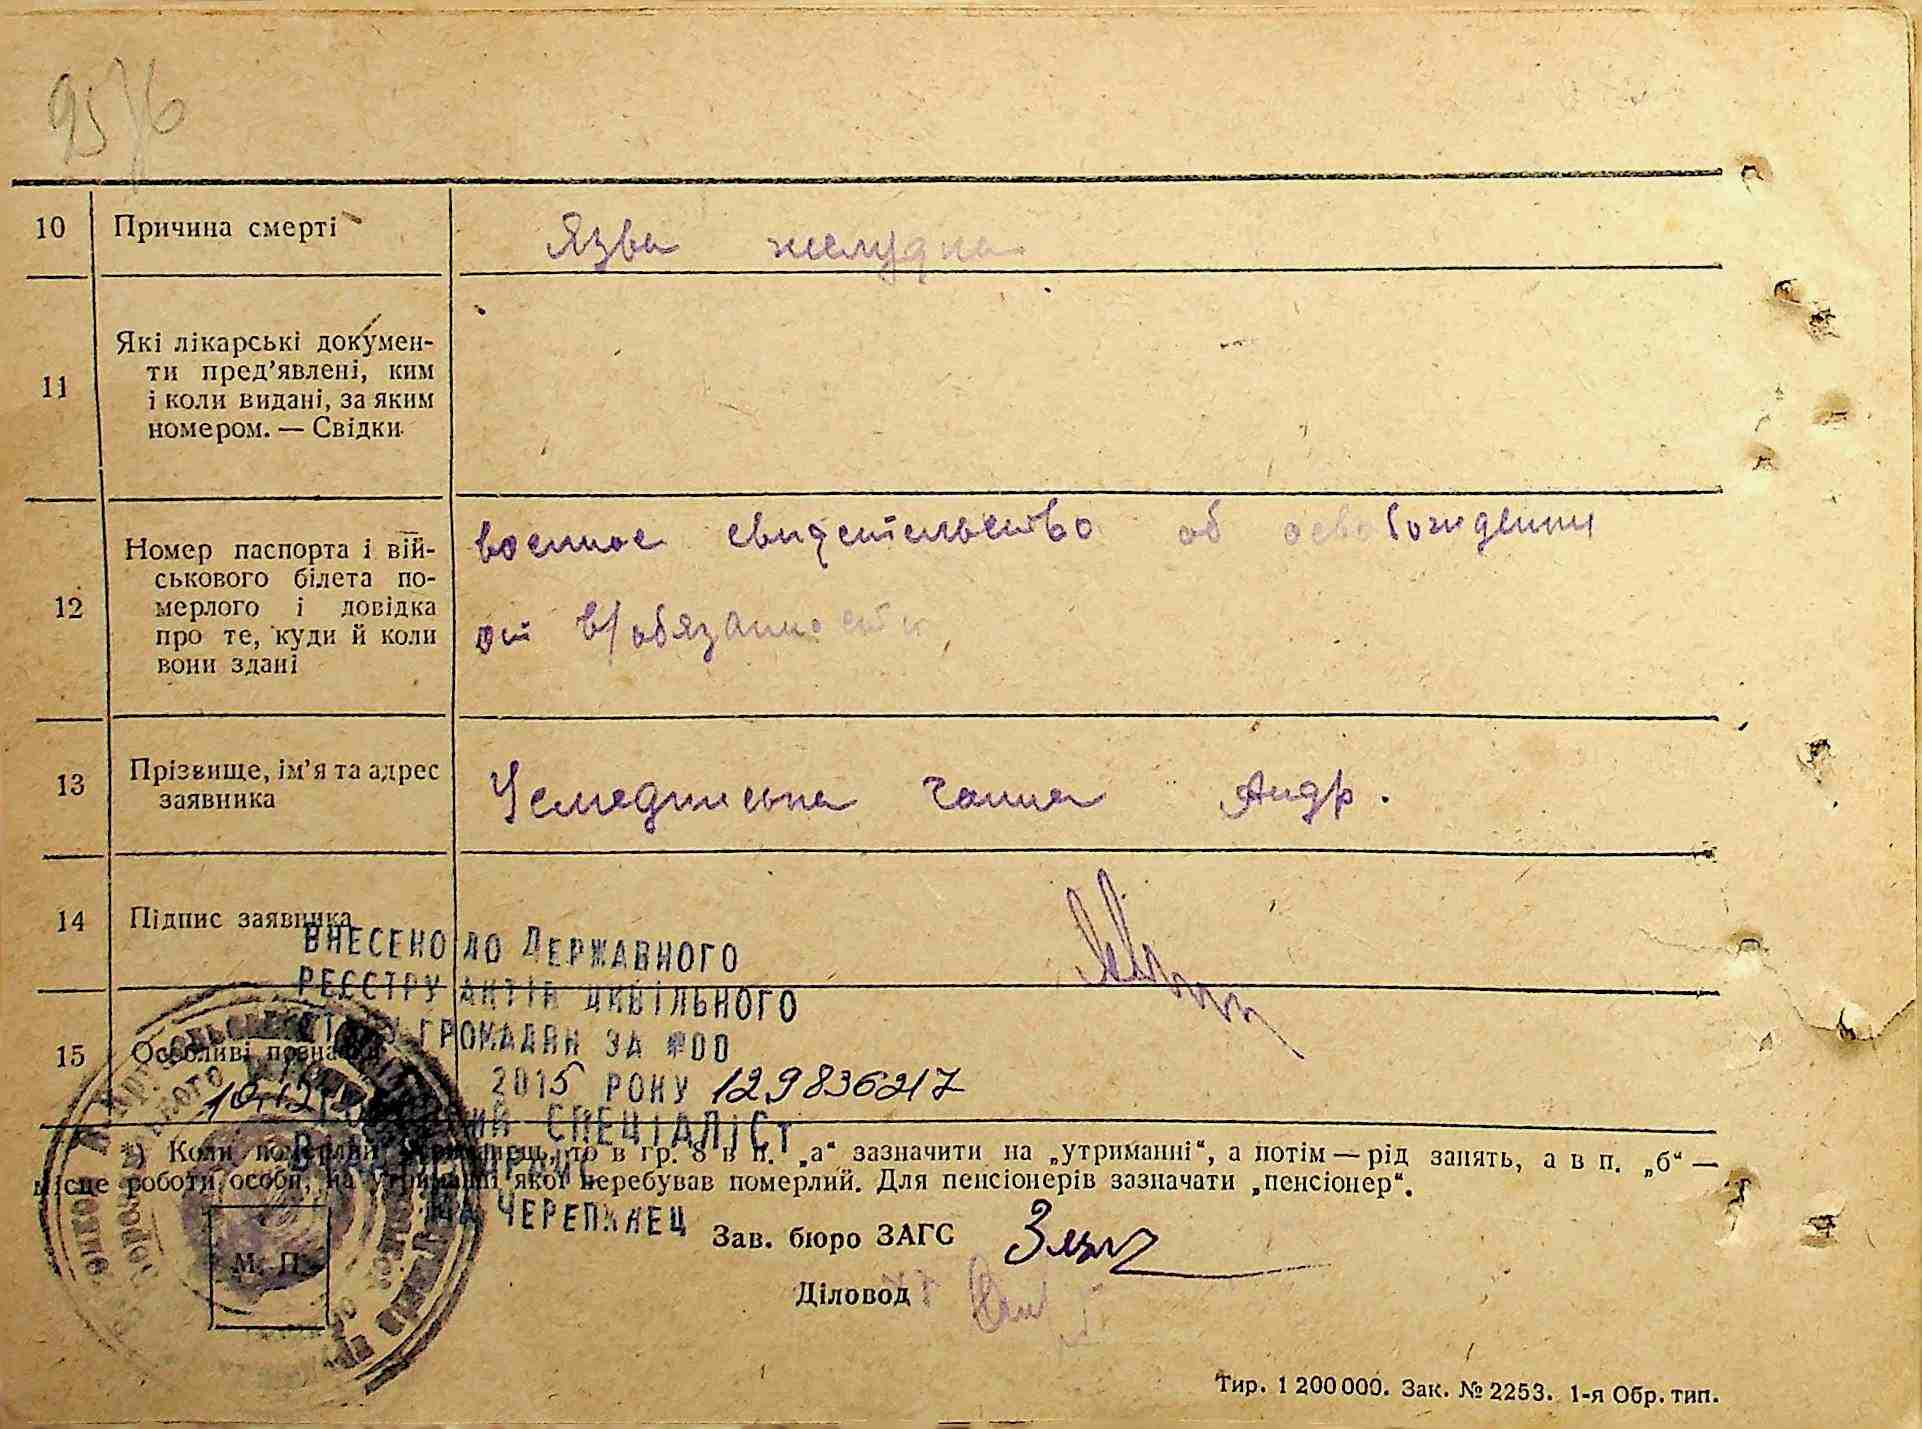 9576
10 Причина смерті Язва желудка
11 Які лікарські докумен-
ти пред’явлені, ким
і коли видані, за яким
номером. — Свідки
12 Номер паспорта і вій-
ськового білета по-
мерлого і довідка
про те, куди й коли
вони здані
военное свидетельство об освобождении
от в/обязанности
13 Прізвище, ім’я та адрес
заявника
Андр.
14 Підпис заявника
ВНЕСЕНО ДО ДЕРЖАВНОГО
РЕЄСТРУ АКТІВ ЦИВІЛЬНОГО
ГРОМАДЯН ЗА №00
15 Особливі познаки
2015 РОКУ 129836217
СПЕЦІАЛІСТ
*) Коли померлий утриманець, то в гр. 8 в п. „а“ зазначити на „утриманні“, а потім — рід занять, а в п. „б“ —
місце роботи особи, на утриманні якої перебував померлий. Для пенсіонерів зазначати „пенсіонер“.
ЧЕРЕПИНЕЦ
Зав. бюро ЗАГС
М. П.
Діловод
Тир. 1 200 000. Зак. № 2253. 1-я Обр. тип.